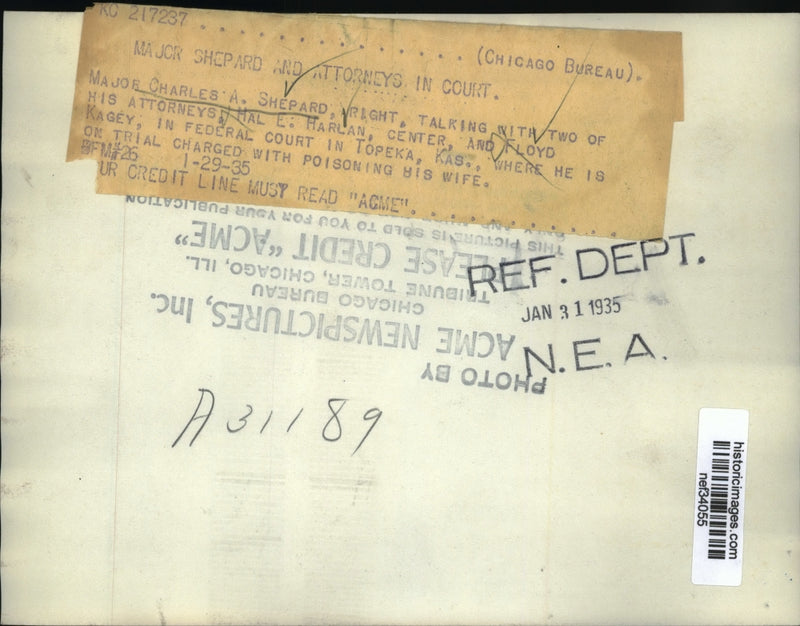 KC 217237 . . . . . . . . . . . . . . (CHICAGO BUREAU).
MAJOR SHEPARD AND ATTORNEYS IN COURT.
MAJOR CHARLES A. SHEPARD, RIGHT, TALKING WITH TWO OF
HIS ATTORNEYS, HAL E. HARLAN, CENTER, AND FLOYD
KAGEY, IN FEDERAL COURT IN TOPEKA, KAS., WHERE HE IS
ON TRIAL CHARGED WITH POISONING HIS WIFE.
1-29-35
UR CREDIT LINE MUST READ "ACME". . . . . . . . . . . .
REF. DEPT.
JAN 31 1935
N.E.A.
PHOTO BY
ACME NEWSPICTURES, Inc.
CHICAGO BUREAU
TRIBUNE TOWER, CHICAGO, ILL.
PLEASE CREDIT "ACME"
THIS PICTURE IS SOLD TO YOU FOR YOUR PUBLICATION
A31189
historicimages.com
nef34055